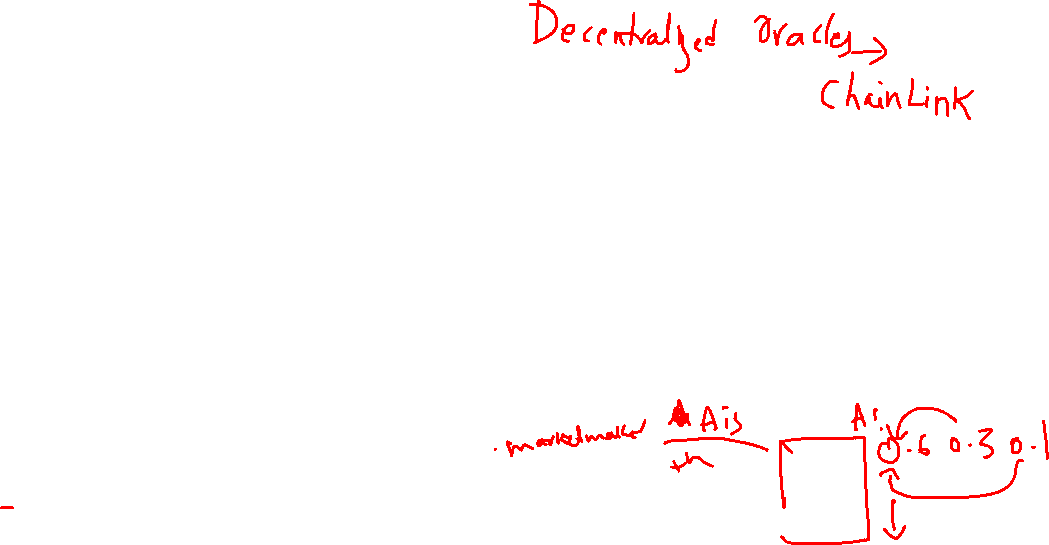 Decentralized oracles →
ChainLink
.marketmaker Ais Ai 0.6 0.3 0.1